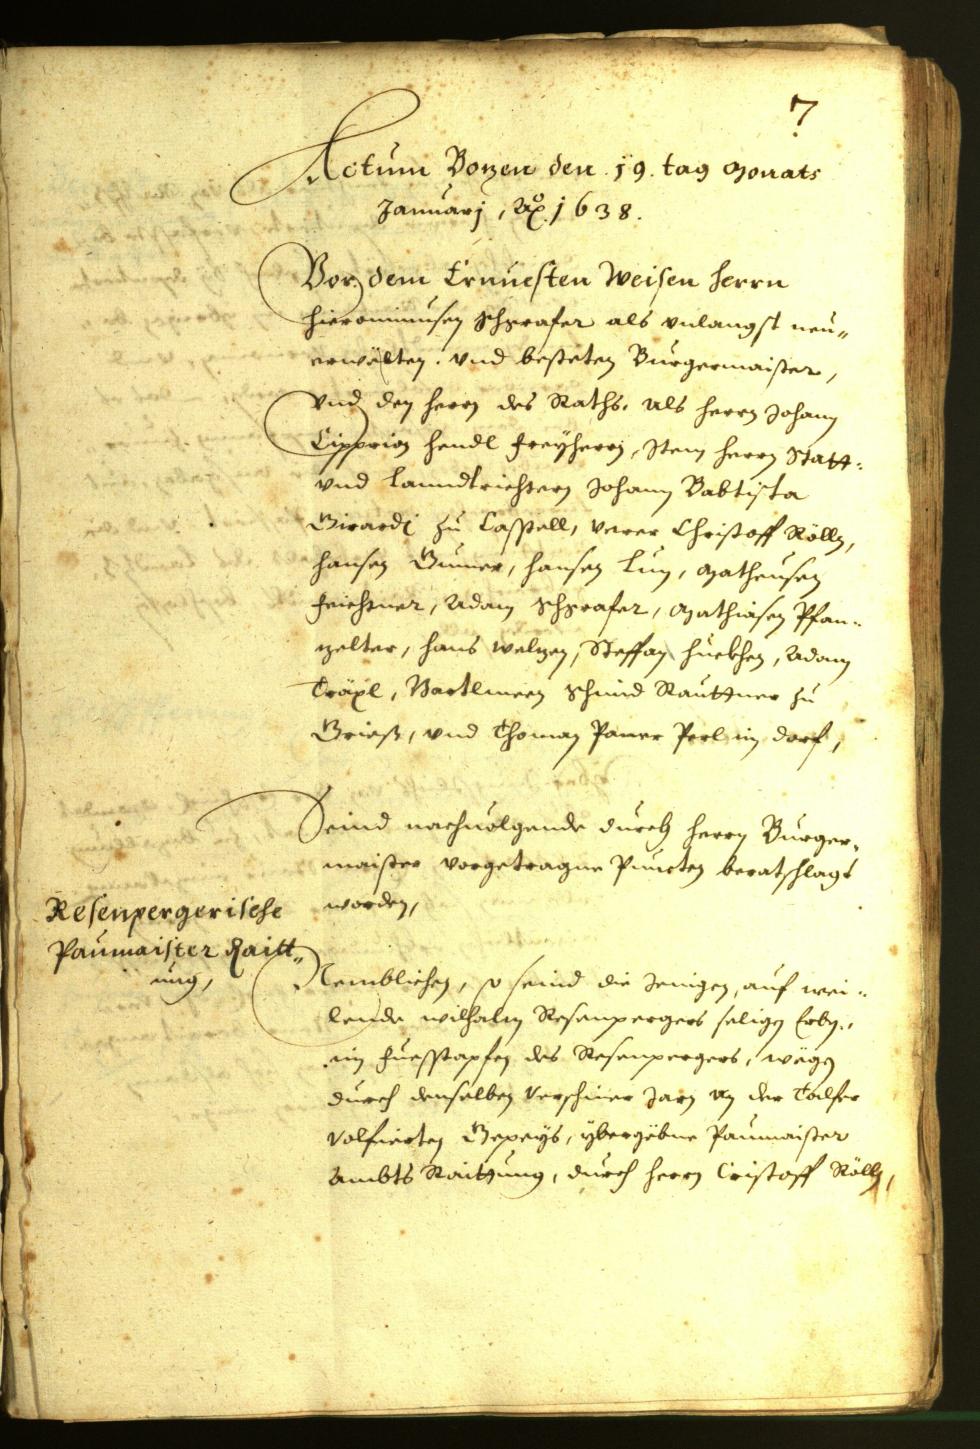 7
Actum Bozen den .19. tag Monats
Januarj, Ao. 1638.
Vor dem Ernuesten Weisen herrn
Hieronimusen Schgrafer als vnlangst neu„
erwälten vnd besteten Burgermaister,
vnd den herrn des Raths, als herrn Johann
Cipprian Hendl Freyherrn, Item herrn Statt:
vnd Lanndtrichtern Johann Babtista
Girardj zu Castell, Christoff Rölln,
Hansen Gumer, Hansen Lun, Matheusen
Feichtner, Adam Schgrafer, Mathiasen Pfan„
zelter, Hans Welzen, Steffan Huebher, Adam
Träxl, Bartlmeen Schmid Rauttner zu
Grieß, vnd Thoman Paner Perl im dorf,
Seind nachuolgende durch herrn Burger„
maister vorgetragne Puncten beratschlagt
worden,
Resenpergerische
Paumaister Raitt„
ung,
Nemblichen, so seind die Jenigen, auf wei„
lende Wilhalm Resenpergers seligen Erben,
in Fuesstapfen des Resenpergers, wegen
durch denselben verschiner Jarn an der Talfer
volfierten Gepeys, ybergebne Paumaister
Ambts Raittung, durch herrn Cristoff Rölln,